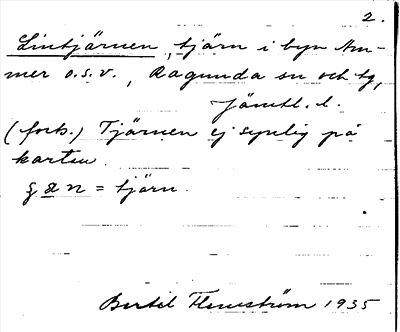 2.
Lintjärnen, tjärn i byn Am-
mer o.s.v., Ragunda sn och tg,
Jämtl. l.
(forts.) Tjärnen ej synlig på
kartan.
= tjärn.
Bertil Flemström 1935